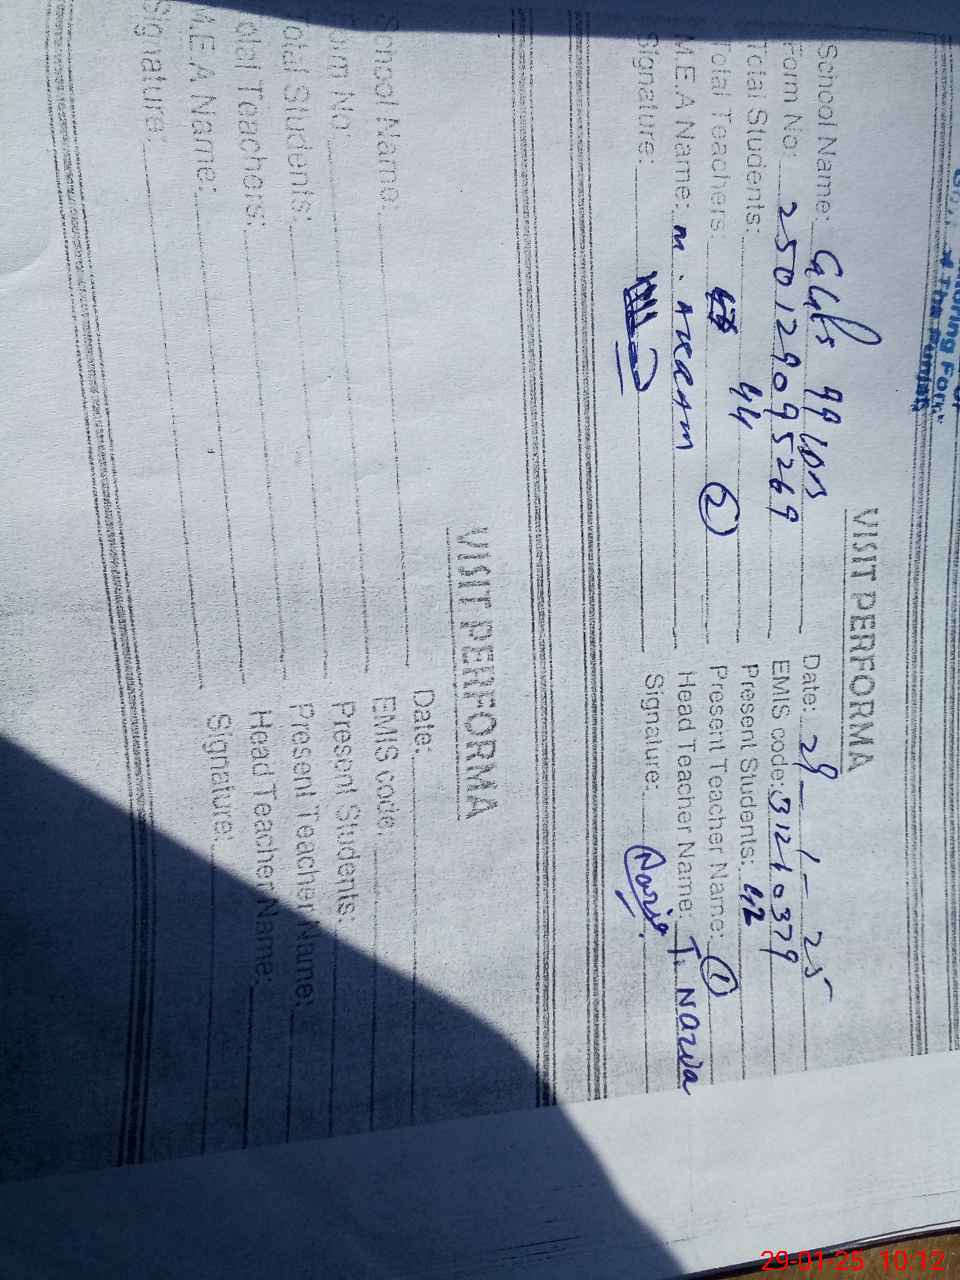 * The Rumin
VISIT PERFORMA
School Name: GGPS 99 Date: 29-1-25
Form No: 250129095269 EMIS code: 31210379
Total Students: 44 Present Students: 42
Total Teachers: 2 Present Teacher Name: 1
M.E.A Name: M. Akram Head Teacher Name: T. Nazia
Signature: Signature: Nazia
VISIT PERFORMA
School Name: Date:
Form No: EMIS code:
Total Students: Present Students:
Total Teachers: Present Teacher Name:
M.E.A Name: Head Teacher Name:
Signature: Signature:
29-01-25 10:12